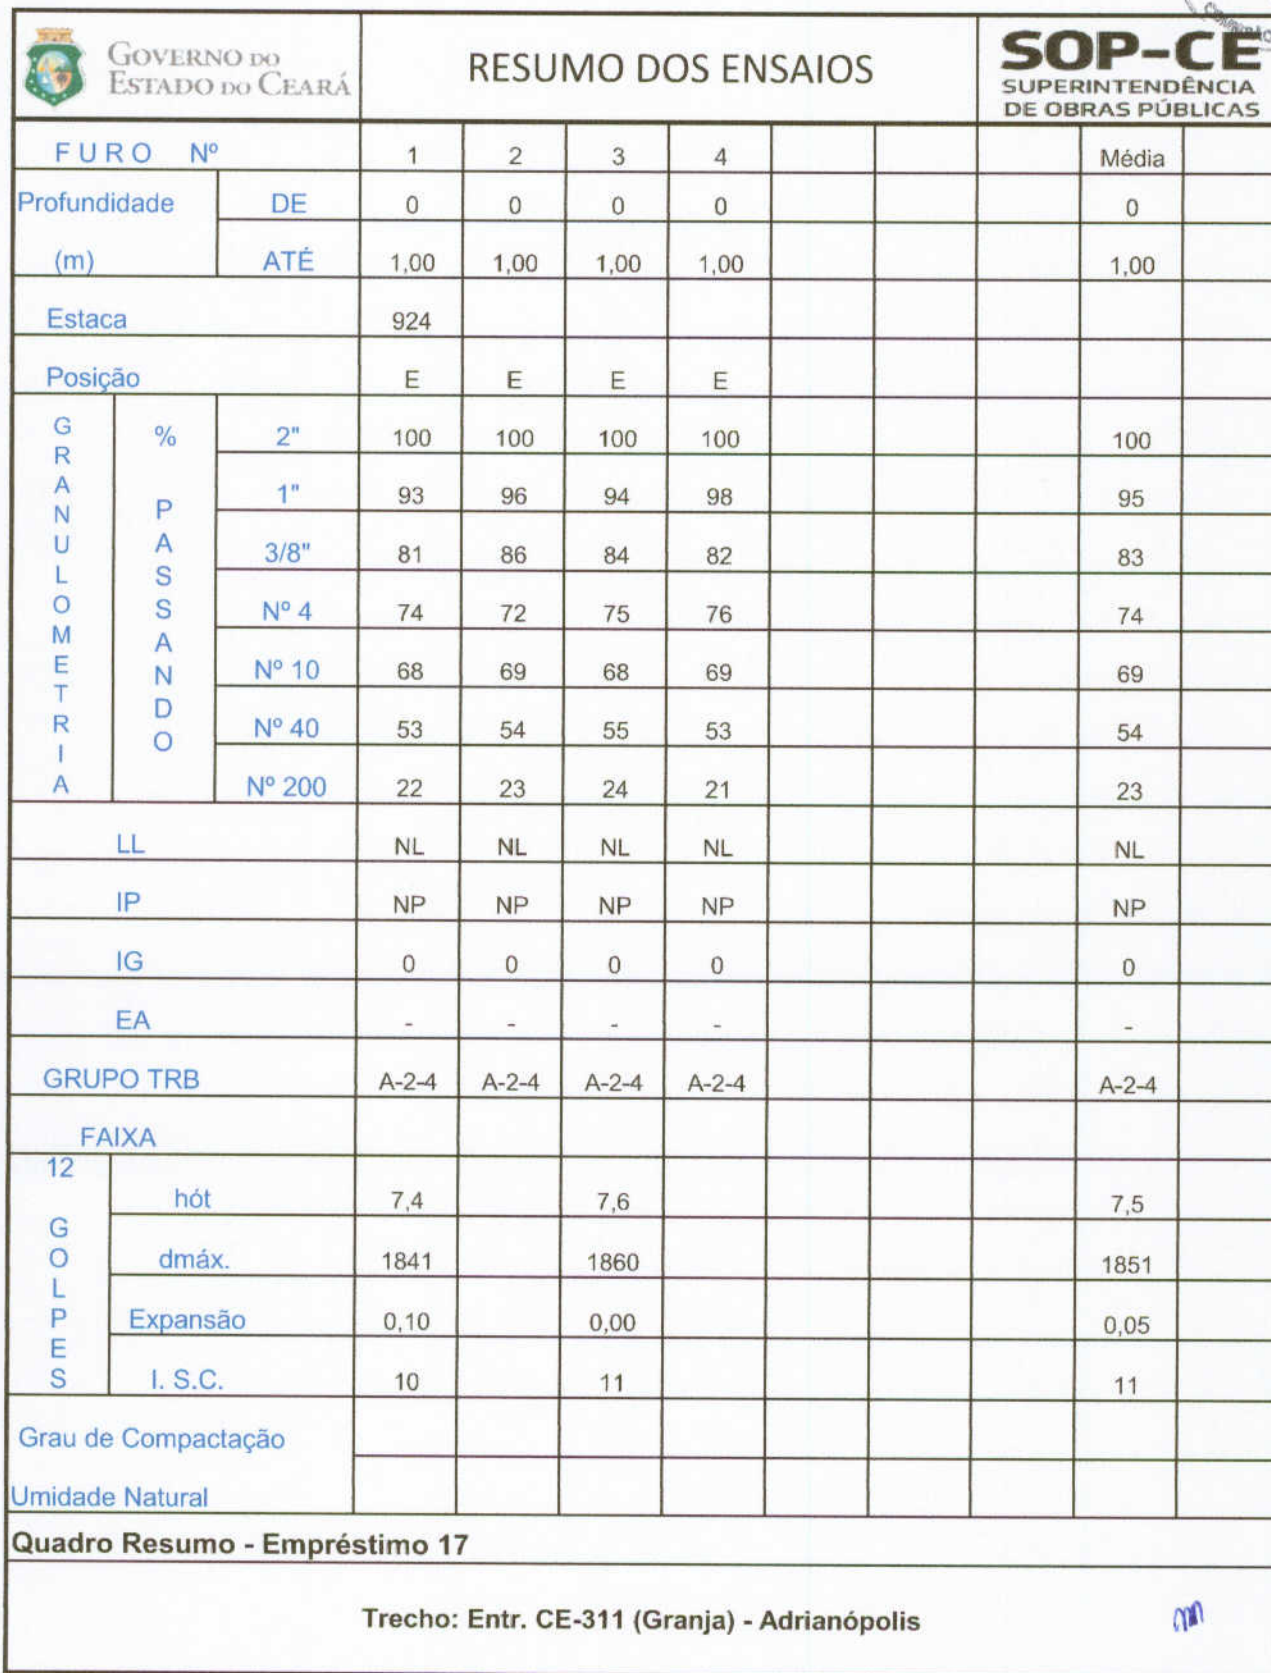 GOVERNO DO
ESTADO DO CEARÁ
RESUMO DOS ENSAIOS
SOP-CE
SUPERINTENDÊNCIA
DE OBRAS PÚBLICAS
FURO Nº 1 2 3 4 Média
Profundidade DE 0 0 0 0 0
(m) ATÉ 1,00 1,00 1,00 1,00 1,00
Estaca 924
Posição E E E E
GRANULOMETRIA
% PASSANDO
2" 100 100 100 100 100
1" 93 96 94 98 95
3/8" 81 86 84 82 83
Nº 4 74 72 75 76 74
Nº 10 68 69 68 69 69
Nº 40 53 54 55 53 54
Nº 200 22 23 24 21 23
LL NL NL NL NL NL
IP NP NP NP NP NP
IG 0 0 0 0 0
EA - - - - -
GRUPO TRB A-2-4 A-2-4 A-2-4 A-2-4 A-2-4
FAIXA
12 GOLPES
hót 7,4 7,6 7,5
dmáx. 1841 1860 1851
Expansão 0,10 0,00 0,05
I. S.C. 10 11 11
Grau de Compactação
Umidade Natural
Quadro Resumo - Empréstimo 17
Trecho: Entr. CE-311 (Granja) - Adrianópolis